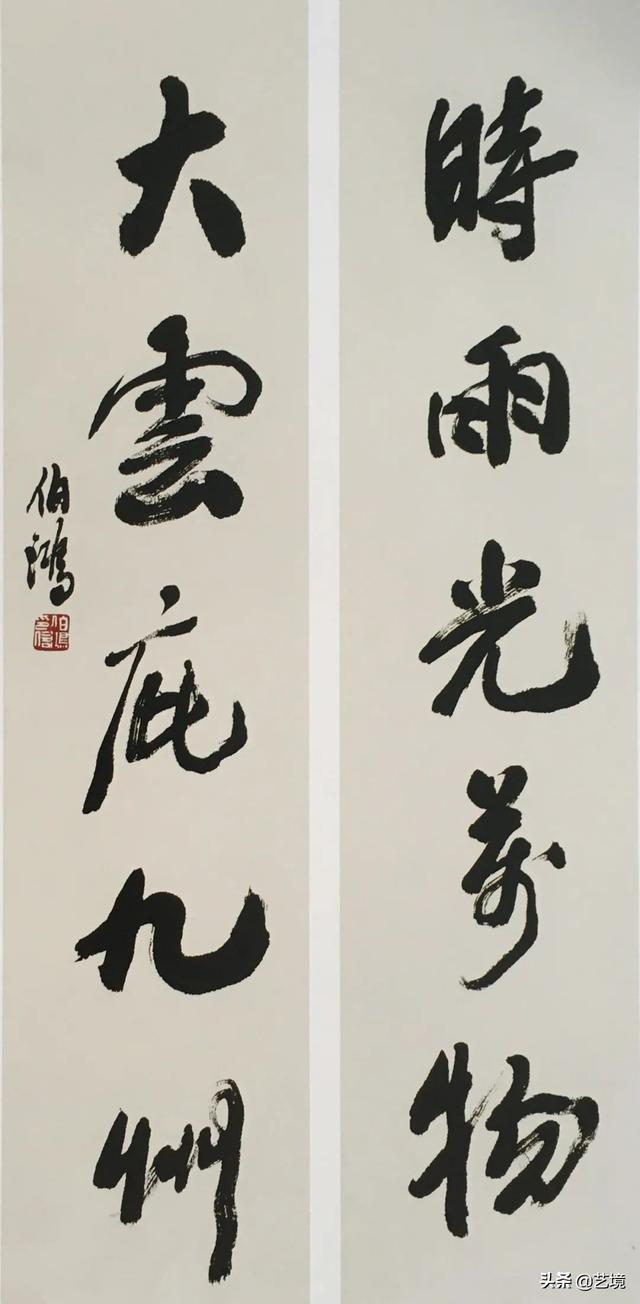 時雨光萬物
大雲庇九州
伯鴻
头条 @艺境